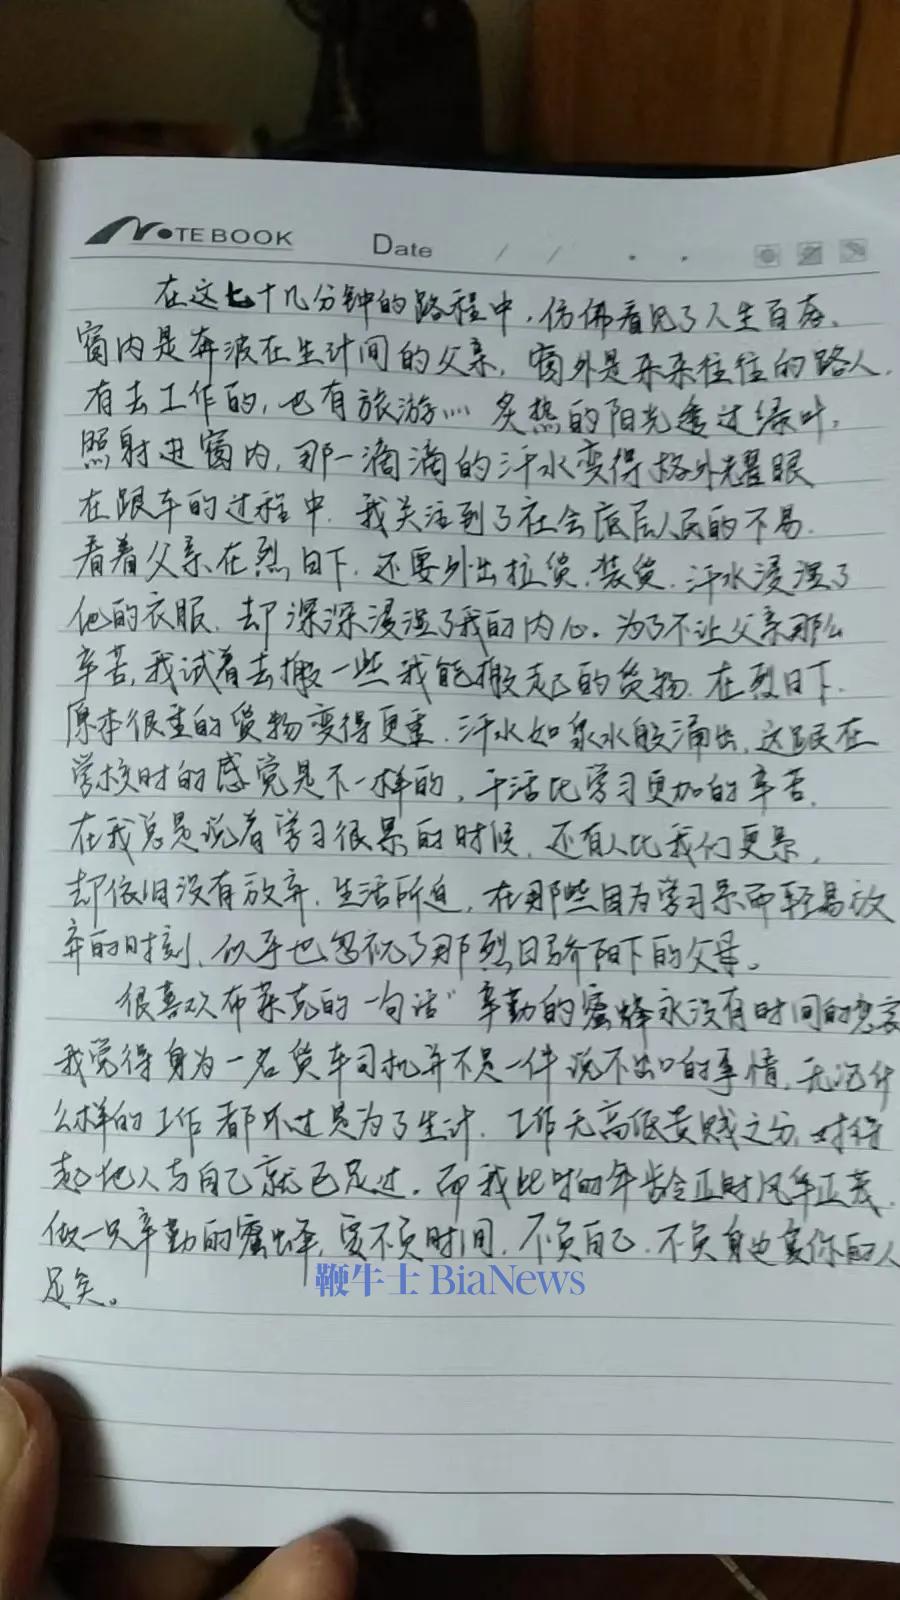 NOTEBOOK Date / / . .
在这七十几分钟的路程中，仿佛看见了人生百态、
窗内是奔波在生计间的父亲，窗外是来来往往的路人，
有去工作的，也有旅游…… 炙热的阳光透过绿叶，
照射进窗内，那一滴滴的汗水变得格外耀眼
在跟车的过程中，我关注到了社会底层人民的不易.
看着父亲在烈日下，还要外出拉货、装货，汗水浸湿了
他的衣服，却深深浸湿了我的内心。为了不让父亲那么
辛苦，我试着去搬一些我能搬起的货物，在烈日下，
原本很重的货物变得更重，汗水如泉水般涌出，这跟在
学校时的感觉是不一样的，干活比学习更加的辛苦，
在我总是说着学习很累的时候，还有人比我们更累，
却依旧没有放弃，生活所迫，在那些因为学习累而轻易放
弃的时刻，似乎也忽视了那烈日骄阳下的父母。
很喜欢布莱克的一句话“辛勤的蜜蜂永没有时间的悲哀
我觉得身为一名货车司机并不是一件说不出口的事情，无论什
么样的工作都不过是为了生计，工作无高低贵贱之分，对得
起他人与自己就已足过，而我此时的年龄正时风华正茂，
做一只辛勤的蜜蜂，要不负时间，不负自己，不负身边靠你的人
足矣。
鞭牛士 BiaNews